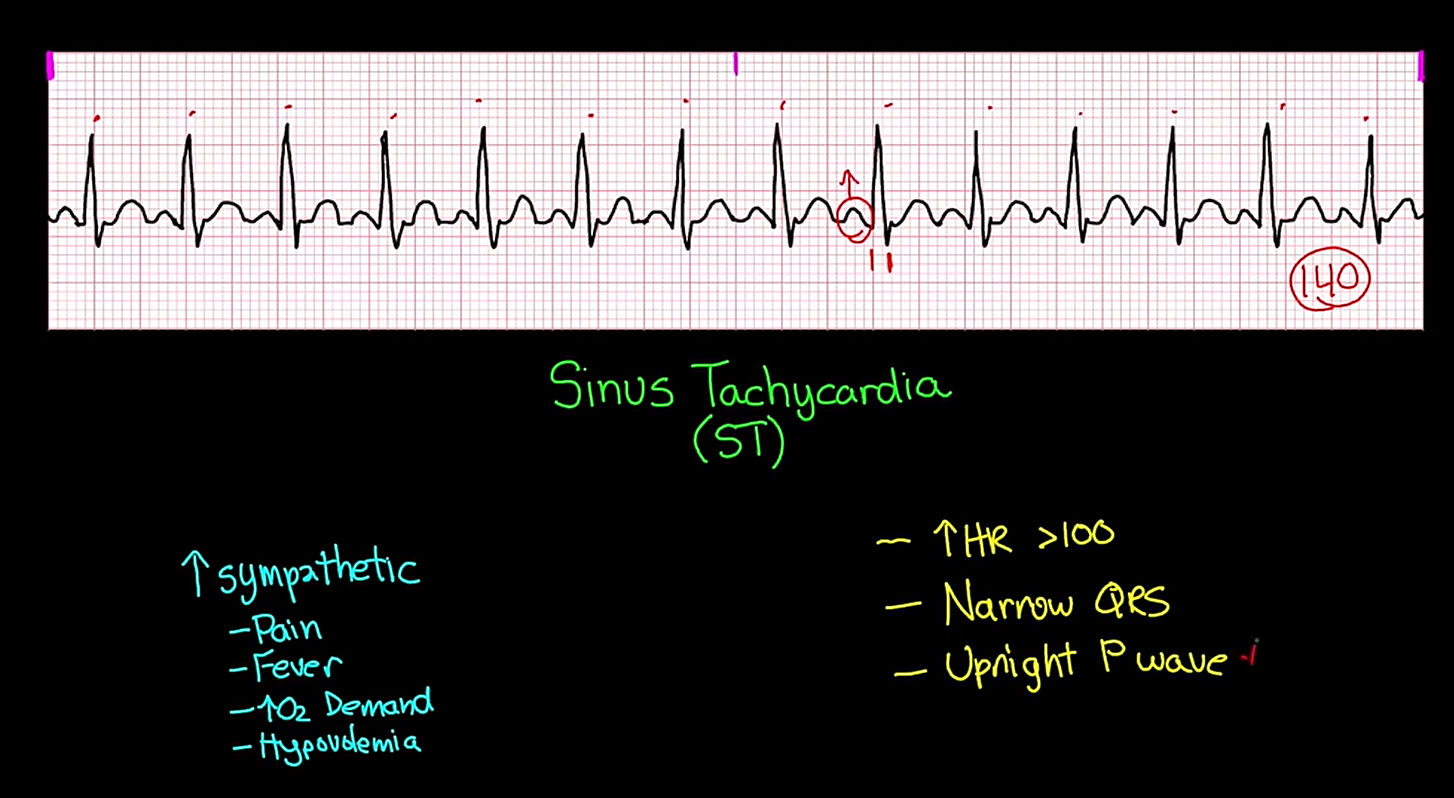 140
Sinus Tachycardia
(ST)
↑ sympathetic
- Pain
- Fever
- ↑O₂ Demand
- Hypovolemia
- ↑HR >100
- Narrow QRS
- Upright P wave